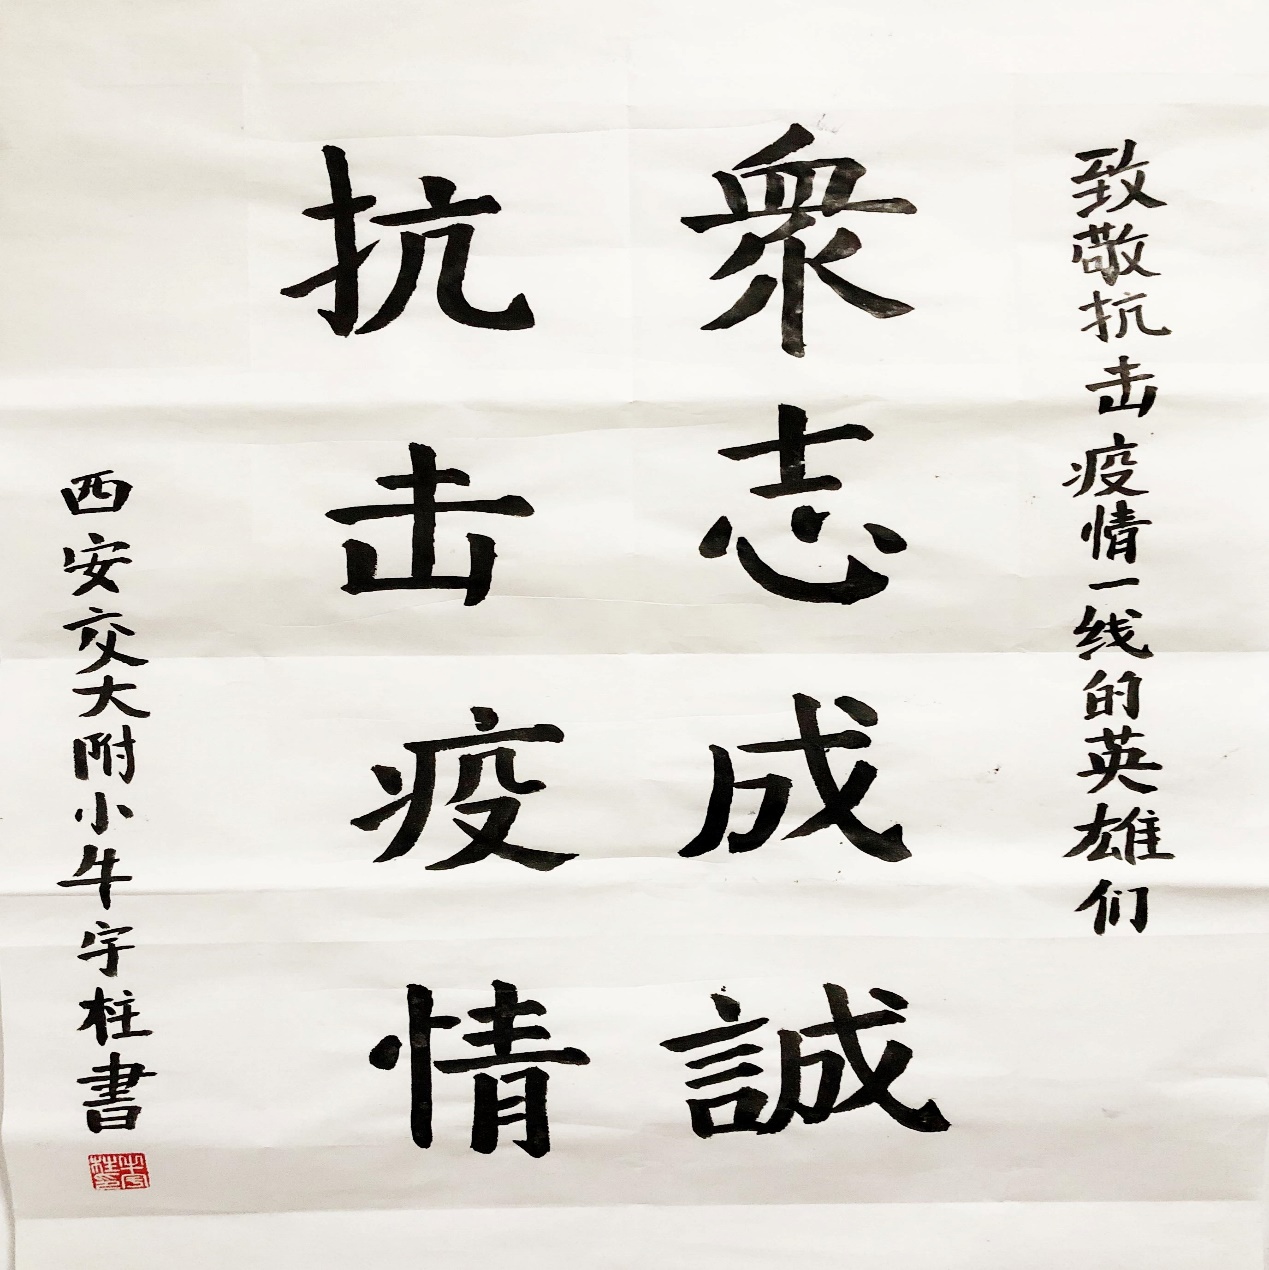 致敬抗击疫情一线的英雄们
衆志成誠
抗击疫情
西安交大附小牛宇柱書